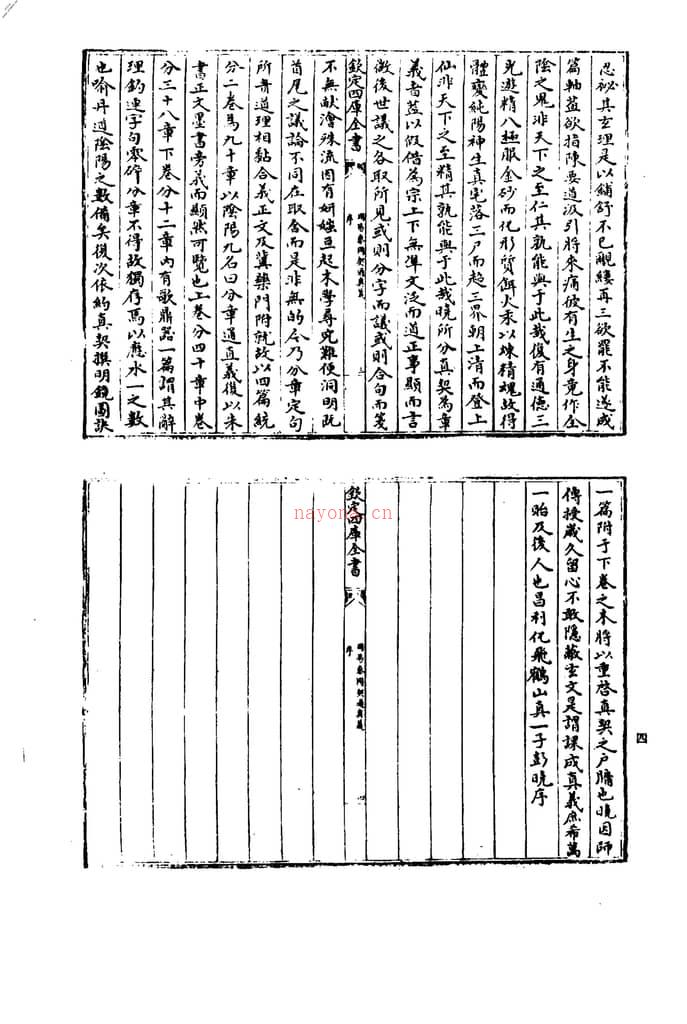 忍祕其玄理是以鋪舒不已覼縷再三欲罷不能遂成
篇軸蓋欲指陳要道汲引將來痛彼有生之身竟作全
陰之鬼非天下之至仁其孰能與于此哉復有通德三
光遊精八極服金砂而化形質餌火汞以堁精魂故得
體變純陽神生真宅落三尸而超三界朝上清而登上
仙非天下之至精其孰能與于此哉曉所分真契為章
義者蓋以假借為宗上下無準文泛而道正事顯而言
微後世議之各取所見或則分字而議或則合句而箋
欽定四庫全書
周易參同契通真義
序
三
不無畎澮殊流因有妍媸互起末學尋究難便洞明既
首尾之議論不同在取舍而是非無的今乃分章定句
所貴道理相黏合義正文及冀藥門附就故以四篇統
分三卷為九十章以陰陽九名曰分章通真義復以朱
書正文墨書旁義而顯然可覽也上卷分四十章中卷
分三十八章下卷分十二章內有歌鼎器一篇謂其辭
理鈎連字句零碎分章不得故獨存焉以應水一之數
也喻丹道陰陽之數備矣復次依約真契撰明鏡圖訣
一篇附于下卷之末將以重啓真契之戶牖也曉因師
傳授歲久留心不敢隱蔽玄文是謂課成真義庶希萬
一貽及後人也昌利化飛鶴山真一子彭曉序
欽定四庫全書
周易參同契通真義
序
四
四
nayona.cn